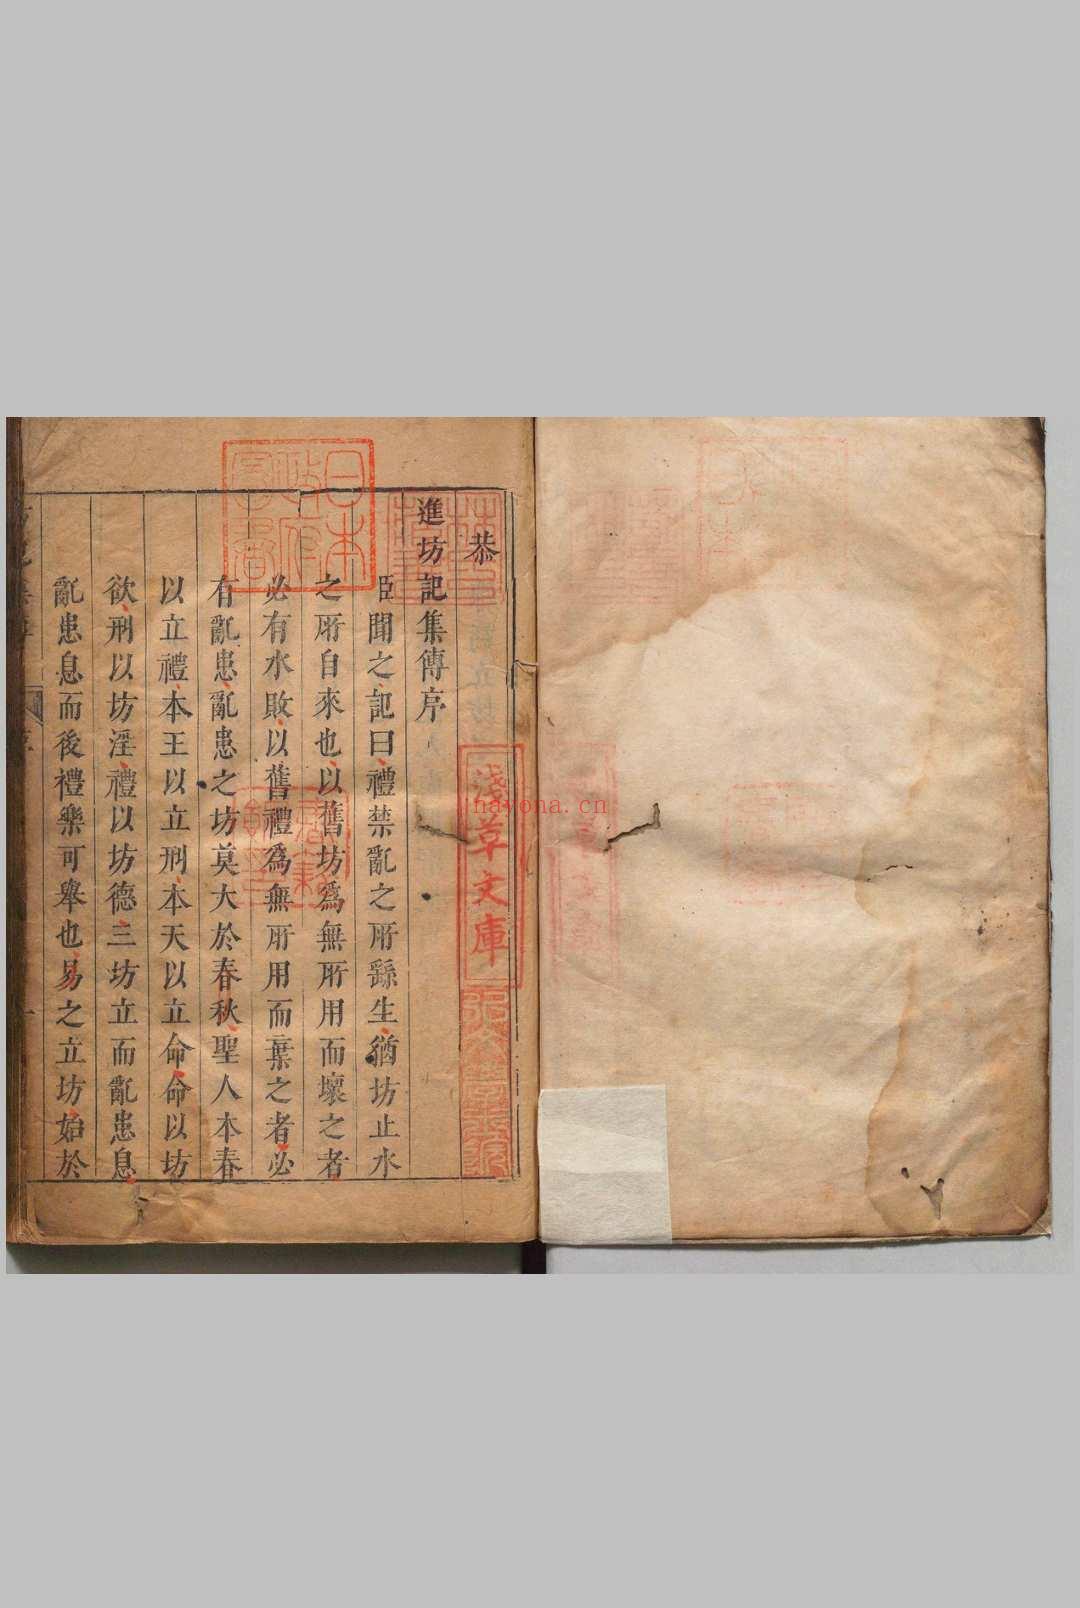 恭
進坊記集傳序
臣聞之記曰禮禁亂之所繇生猶坊止水
之所自來也以舊坊為無所用而壞之者
必有水敗以舊禮為無所用而棄之者必
有亂患亂患之坊莫大於春秋聖人本春
以立禮本王以立刑本天以立命命以坊
欲刑以坊淫禮以坊德三坊立而亂患息
亂患息而後禮樂可舉也易之立坊始於
日本政府圖書
淺草文庫
nayona.cn